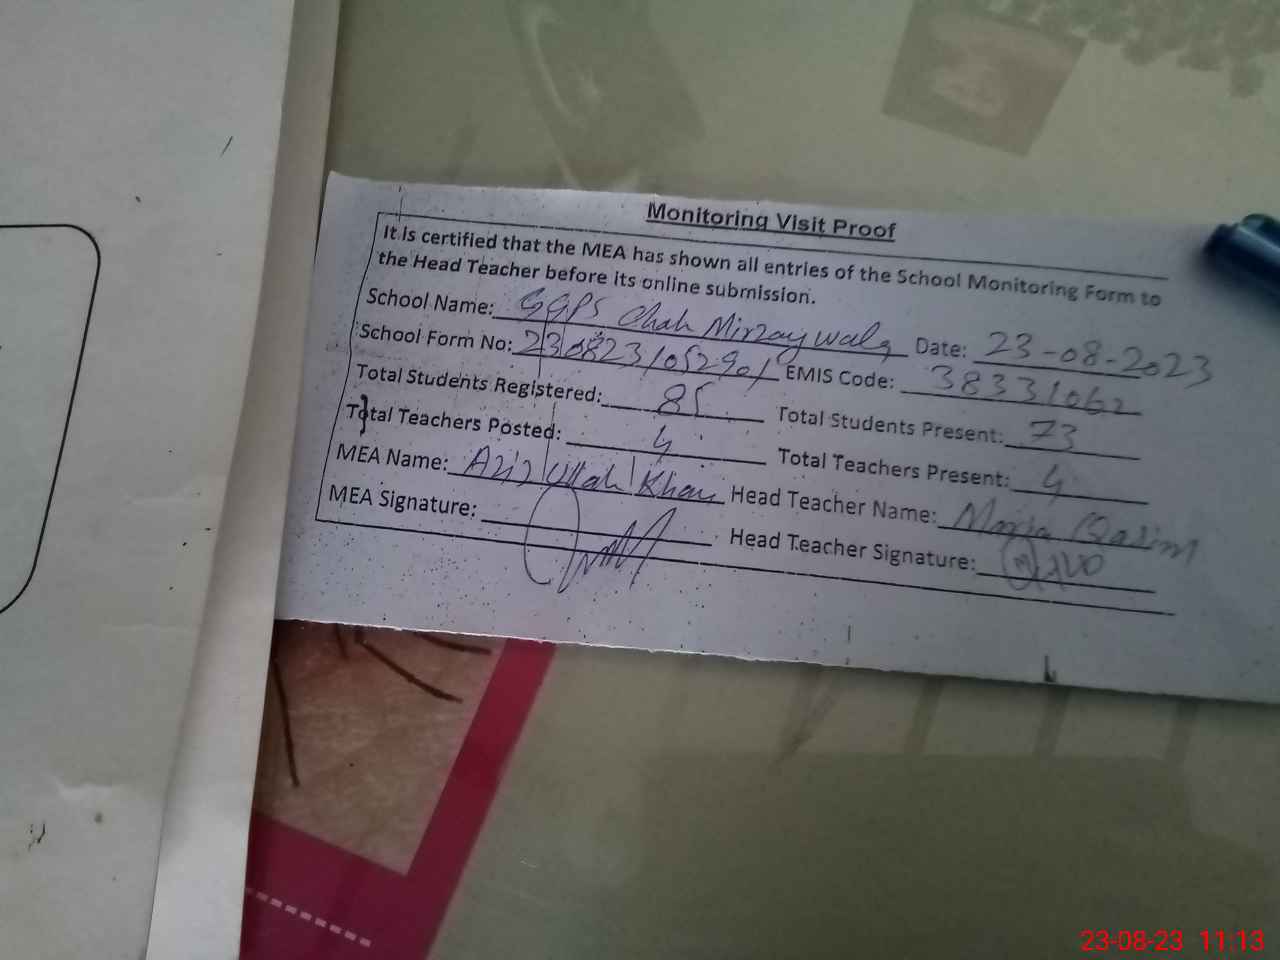 Monitoring Visit Proof
It is certified that the MEA has shown all entries of the School Monitoring Form to
the Head Teacher before its online submission.
School Name: GGPS Chah Mirzay wala Date: 23-08-2023
School Form No: 230823105290/ EMIS Code: 38331062
Total Students Registered: 85 Total Students Present: 73
Total Teachers Posted: 4 Total Teachers Present: 4
MEA Name: Aziz Ullah Khan Head Teacher Name: Maria Qasim
MEA Signature: Head Teacher Signature:
23-08-23 11:13